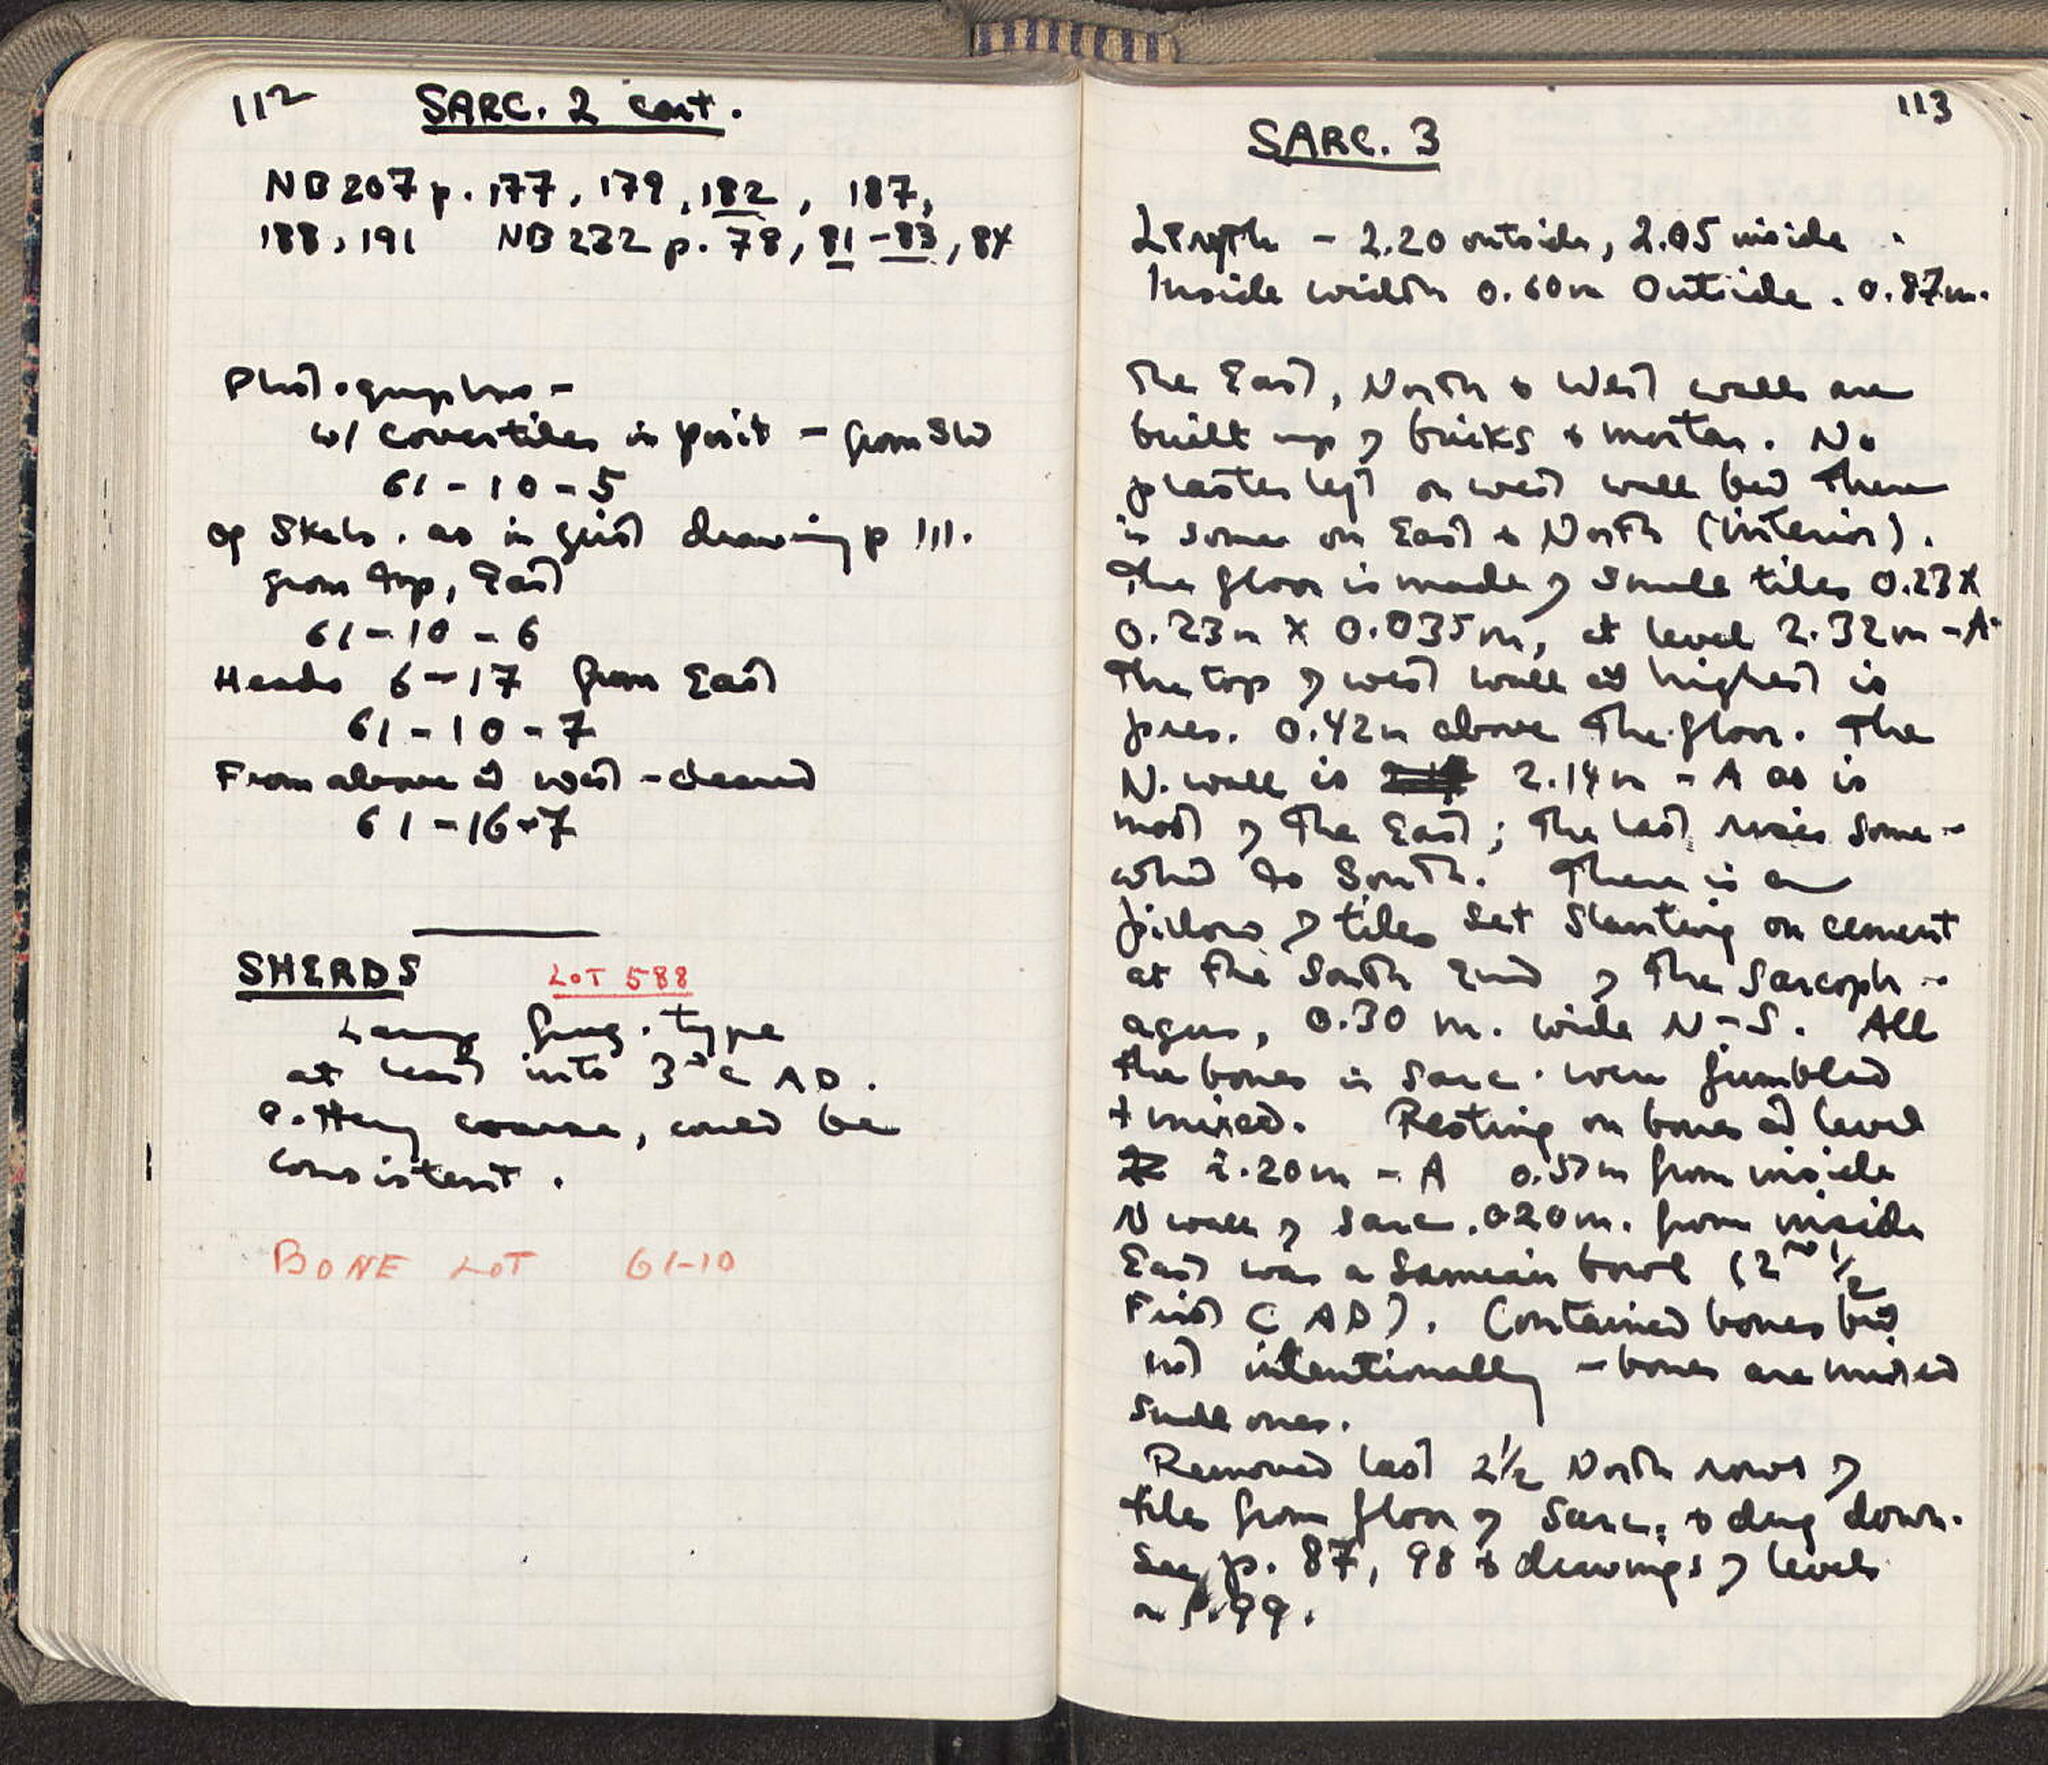 112
SARC. 2 cont.
NB 207 p. 177, 179, 182, 187,
188, 191 NB 232 p. 78, 81-83, 84
Photographs -
w/ cover tiles in posit - from SW
61-10-5
of Skels. as in first drawing p 111.
from top, East
61-10-6
Heads 6-17 from East
61-10-7
From above at West - cleared
61-16-7
SHERDS LOT 588
Lamp frag. type
at least into 3rd C AD.
Pottery coarse, could be
consistent.
BONE LOT 61-10
113
SARC. 3
Length - 2.20 outside, 2.05 inside.
Inside width 0.60m Outside. 0.87m.
The East, North & West walls are
built up of bricks & mortar. No
plaster left on west wall but there
is some on East & North (interior).
The floor is made of small tiles 0.23 x
0.23m x 0.035m, at level 2.32m - A.
The top of west wall at highest is
pres. 0.42m above the floor. The
N. wall is 2.14m - A as is
most of the East; the last rises some-
what to South. There is a
pillow of tiles set slanting on cement
at the South End of the Sarcoph-
agus, 0.30 m. wide N-S. All
the bones in Sarc. were jumbled
+ mixed. Resting on bones at level
2.20m - A 0.57m from inside
N wall of Sarc. 0.20m. from inside
East was a Samian bowl (2nd 1/2
First C AD). Contained bones but
not intentionally - bones are mixed
small ones.
Removed last 2 1/2 North rows of
tiles from floor of Sarc. & dug down.
See p. 87, 98 & drawings of levels
on p. 99.